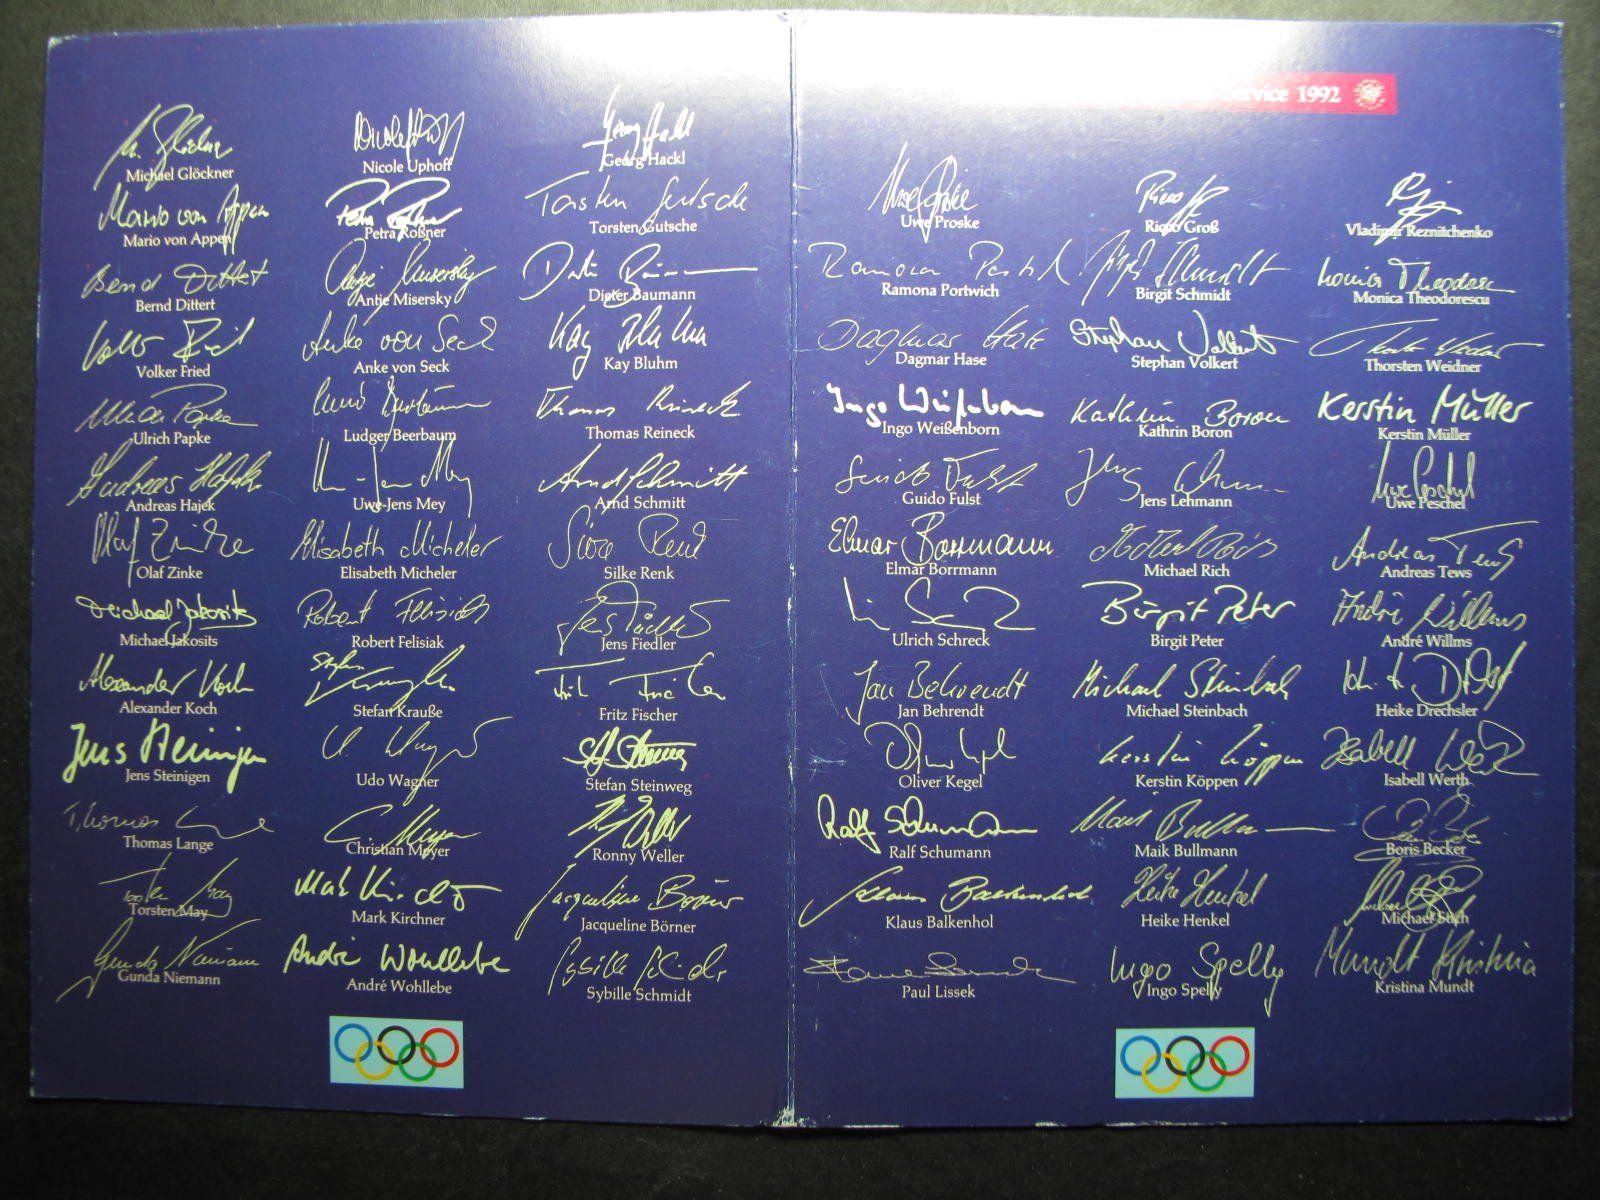 Service 1992
Michael Glöckner
Nicole Uphoff
Georg Hackl
Mario von Appen
Petra Roßner
Torsten Gutsche
Bernd Dittert
Antje Misersky
Dieter Baumann
Volker Fried
Anke von Seck
Kay Bluhm
Ulrich Papke
Ludger Beerbaum
Thomas Reineck
Andreas Hajek
Uwe-Jens Mey
Arnd Schmitt
Olaf Zinke
Elisabeth Micheler
Silke Renk
Michael Jakosits
Robert Felisiak
Jens Fiedler
Alexander Koch
Stefan Krauße
Fritz Fischer
Jens Steinigen
Udo Wagner
Stefan Steinweg
Thomas Lange
Christian Meyer
Ronny Weller
Torsten May
Mark Kirchner
Jacqueline Börner
Gunda Niemann
André Wohllebe
Sybille Schmidt
Uwe Proske
Ricco Groß
Vladimir Reznitchenko
Ramona Portwich
Birgit Schmidt
Monica Theodorescu
Dagmar Hase
Stephan Volkert
Thorsten Weidner
Ingo Weißenborn
Kathrin Boron
Kerstin Müller
Guido Fulst
Jens Lehmann
Uwe Peschel
Elmar Borrmann
Michael Rich
Andreas Tews
Ulrich Schreck
Birgit Peter
André Willms
Jan Behrendt
Michael Steinbach
Heike Drechsler
Oliver Kegel
Kerstin Köppen
Isabell Werth
Ralf Schumann
Maik Bullmann
Boris Becker
Klaus Balkenhol
Heike Henkel
Michael Stich
Paul Lissek
Ingo Spelly
Kristina Mundt